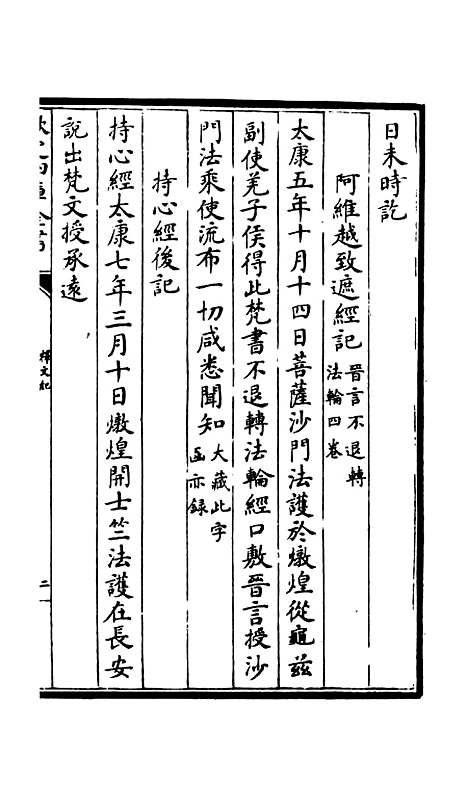 日未時訖
阿維越致遮經記 晉言不退轉
法輪四卷
太康五年十月十四日菩薩沙門法護於燉煌從龜兹
副使羌子侯得此梵書不退轉法輪經口敷晉言授沙
門法乘使流布一切咸悉聞知 大藏此字
函亦録
持心經後記
持心經太康七年三月十日燉煌開士竺法護在長安
說出梵文授承遠
釋文紀